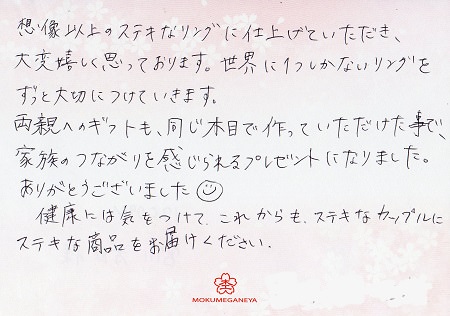 想像以上のステキなリングに仕上げていただき、
大変嬉しく思っております。世界に1つしかないリングを
ずっと大切につけていきます。
両親へのギフトも、同じ木目で作っていただけた事で、
家族のつながりを感じられるプレゼントになりました。
ありがとうございました☺
健康には気をつけて、これからも、ステキなカップルに
ステキな商品をお届けください。
MOKUMEGANEYA